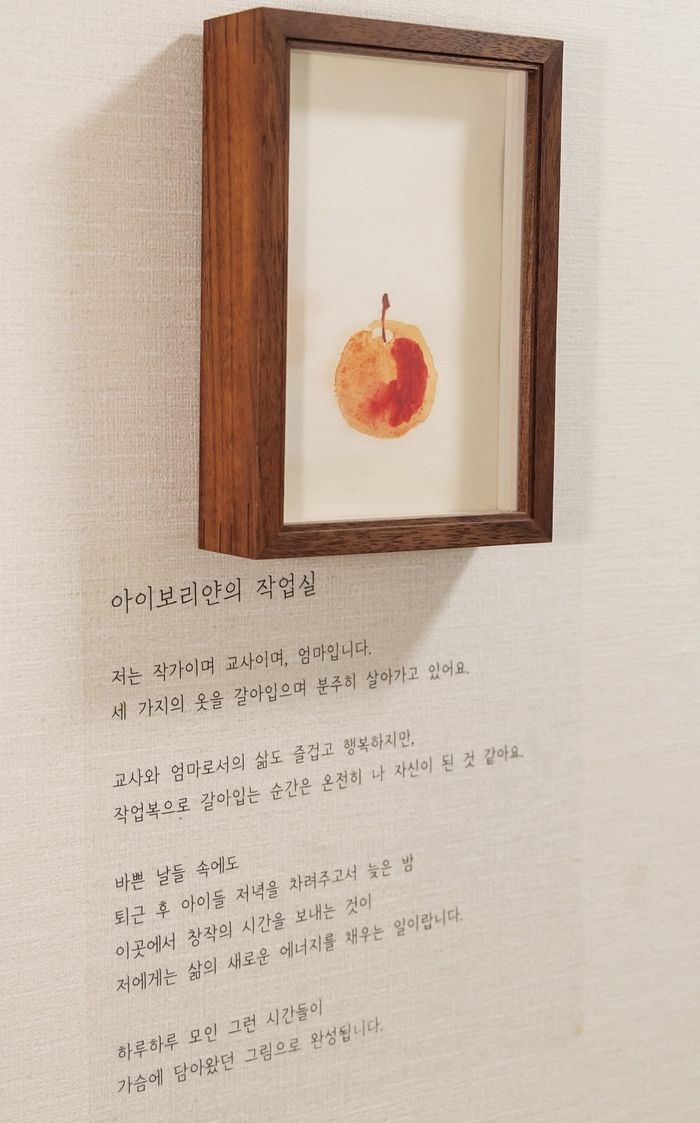 아이보리얀의 작업실
저는 작가이며 교사이며, 엄마입니다.
세 가지의 옷을 갈아입으며 분주히 살아가고 있어요.
교사와 엄마로서의 삶도 즐겁고 행복하지만,
작업복으로 갈아입는 순간은 온전히 나 자신이 된 것 같아요.
바쁜 날들 속에도
퇴근 후 아이들 저녁을 차려주고서 늦은 밤
이곳에서 창작의 시간을 보내는 것이
저에게는 삶의 새로운 에너지를 채우는 일이랍니다.
하루하루 모인 그런 시간들이
가슴에 담아왔던 그림으로 완성됩니다.